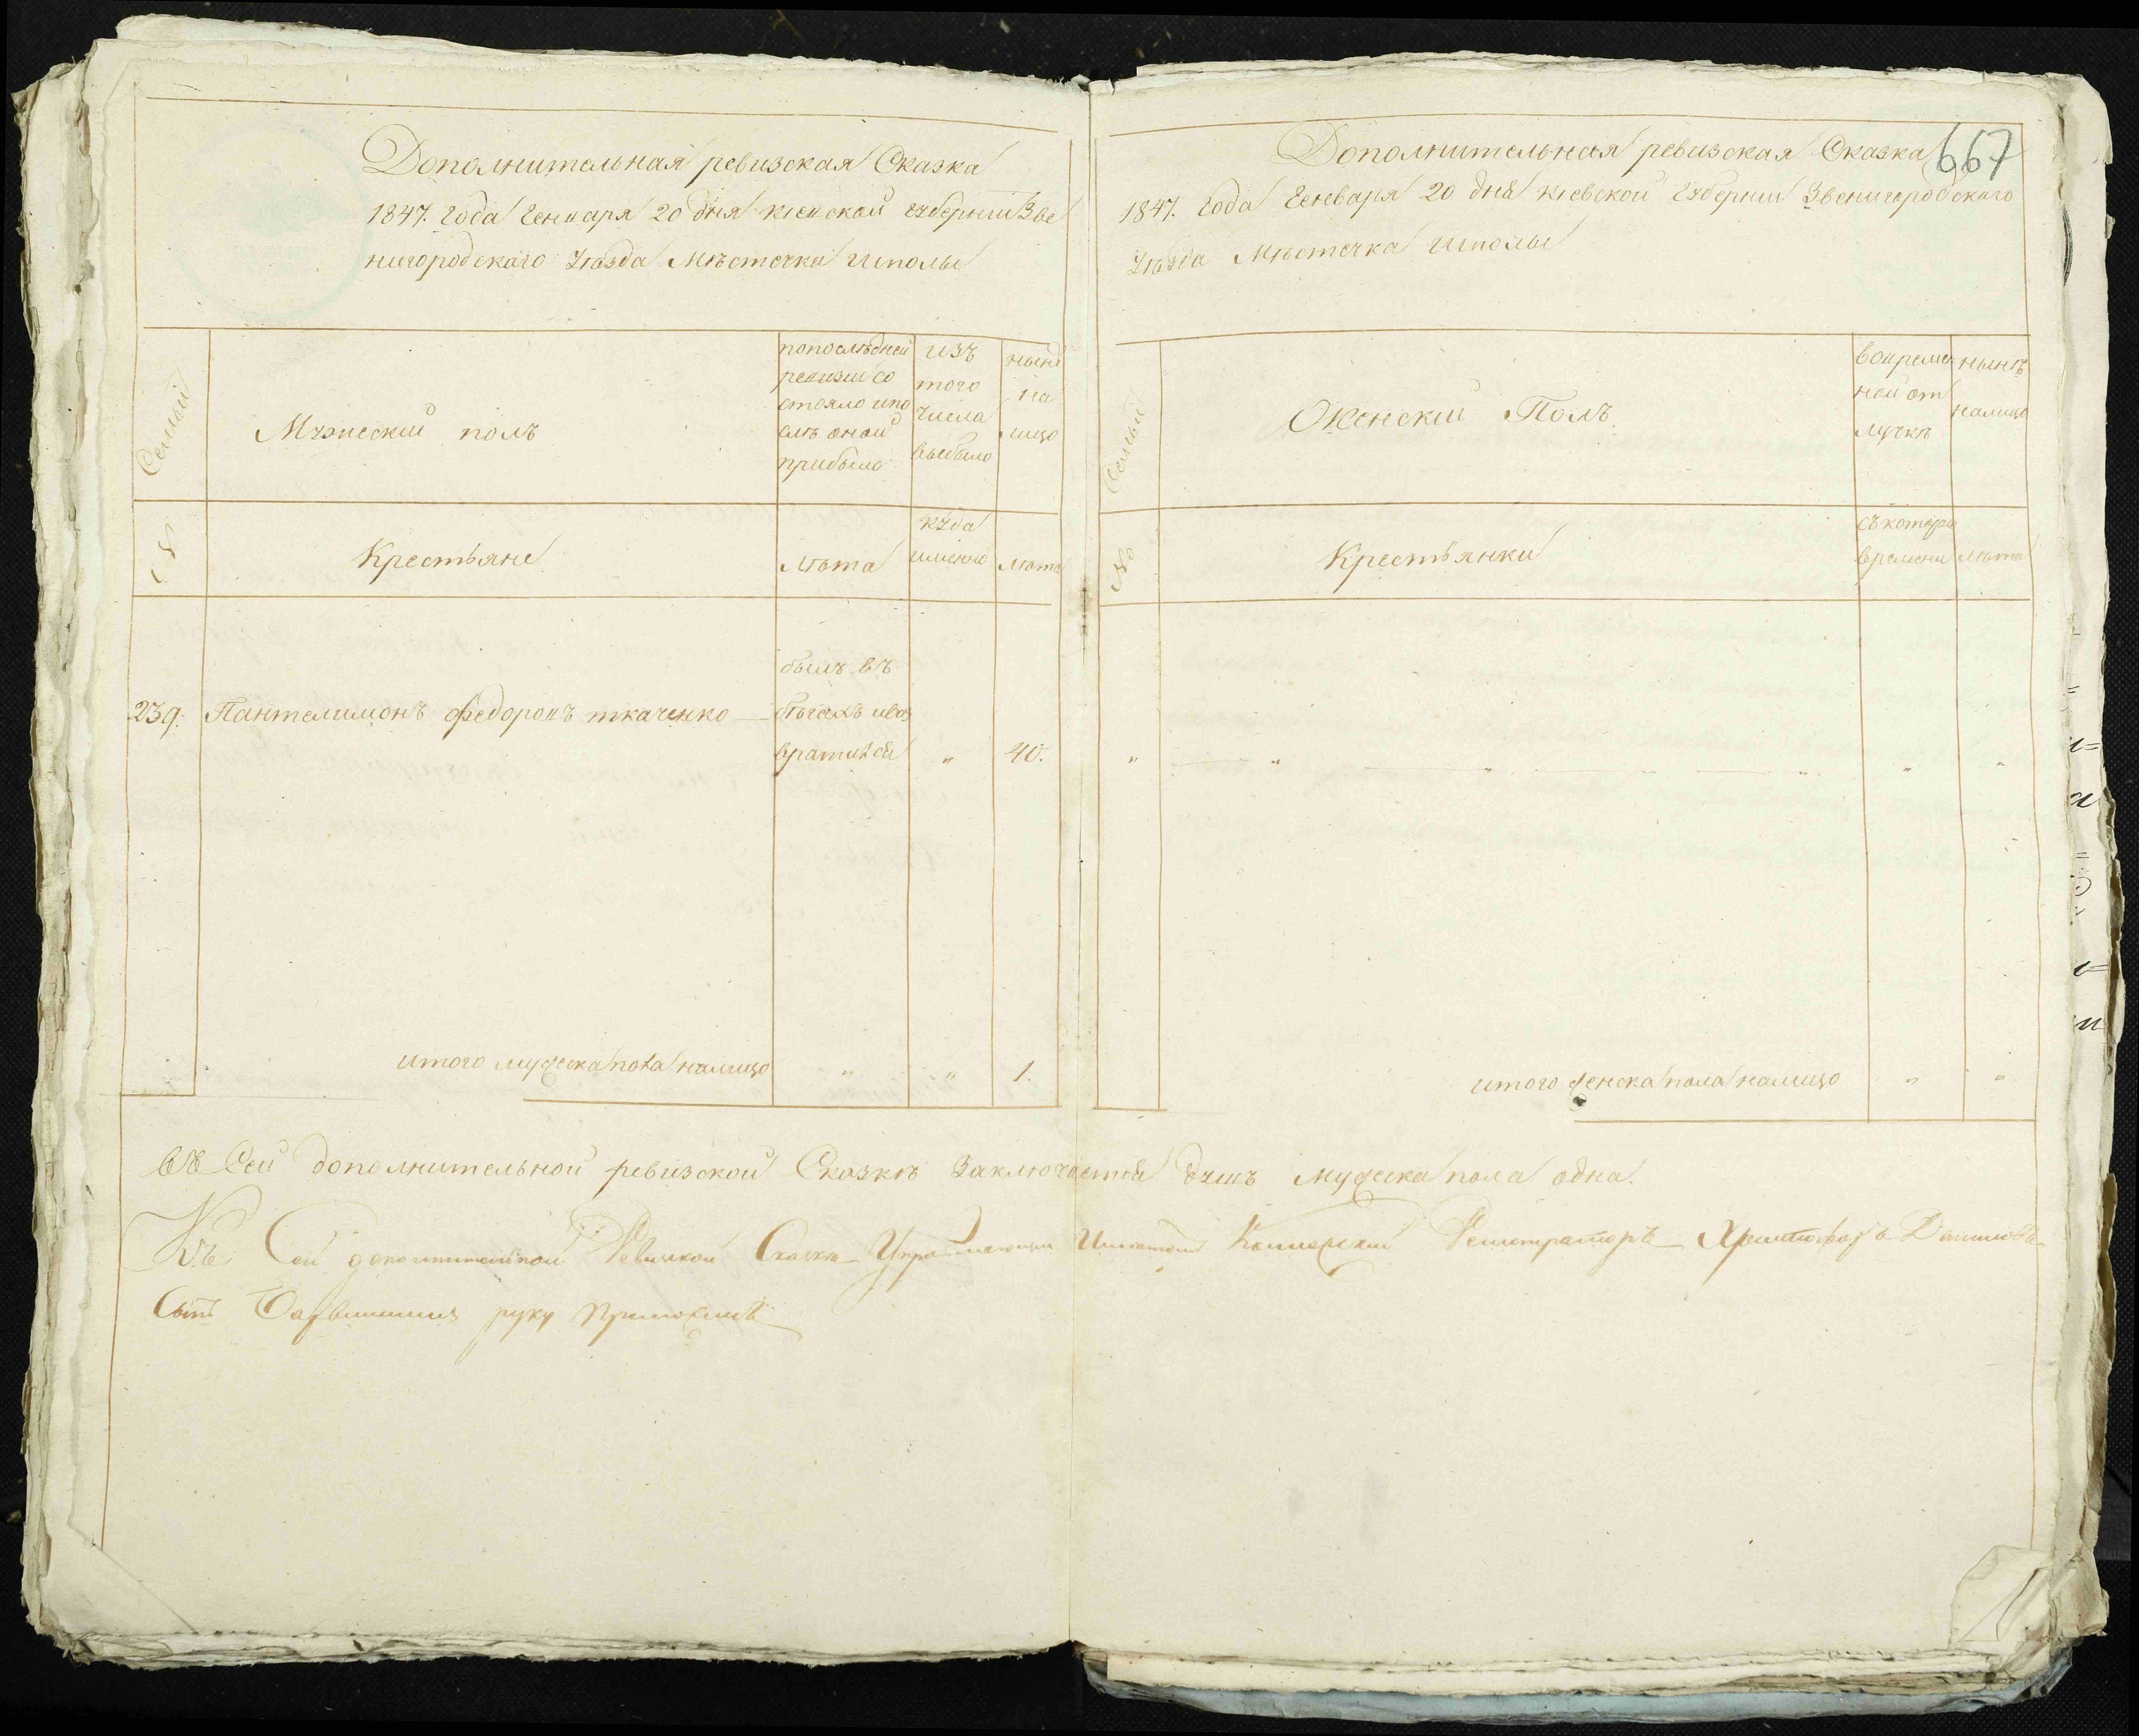 Дополнительная ревизская Сказка
1847. Года Генваря 20 дня кіевской Губерніи Зве
нигородского Уѣзда Мѣстечка Шполы
Семьи
Мужескій полъ
по послѣдней
ревизіи со
стояло и по
слѣ оной
прибыло
изъ
того
числа
выбыло
нынѣ
на
лицо
№
Крестьяне
Лѣта
куда
именно
Лѣта
239. Пантелимонъ Федоровъ ткаченко
былъ въ
бѣгахъ и воз
вратился " 40.
итого мужеска пола налицо " " 1.
667
Дополнительная ревизская Сказка
1847. Года Генваря 20 дня кіевской Губерніи Звенигородского
Уѣзда Мѣстечка Шполы
Семьи
Женскій Полъ
во време
ной от
лучкѣ
нынѣ
налицо
№
Крестьянки
съ котораго
времени
Лѣта
" " " " " "
итого женска пола налицо " "
Въ Сей дополнительной ревизской Сказкѣ Заключается душъ мужеска пола одна.
Къ Сей дополнительной Ревизкой Сказкѣ Управляющій Имѣніемъ Колежскій Регистраторъ Христофоръ Даниловъ
Сынъ руку Приложилъ